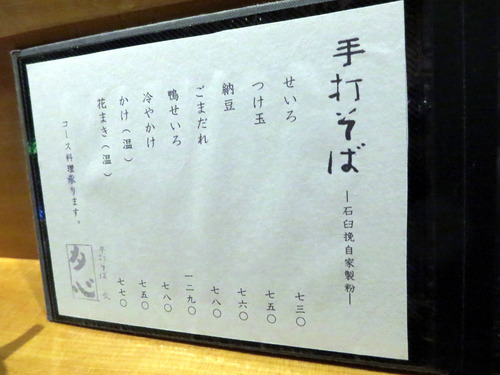 手打そば
―石臼挽自家製粉―
せいろ 七三〇
つけ玉 七五〇
納豆 七六〇
ごまだれ 七八〇
鴨せいろ 一二九〇
冷やかけ 七八〇
かけ（温） 七五〇
花まき（温） 七七〇
コース料理承ります。